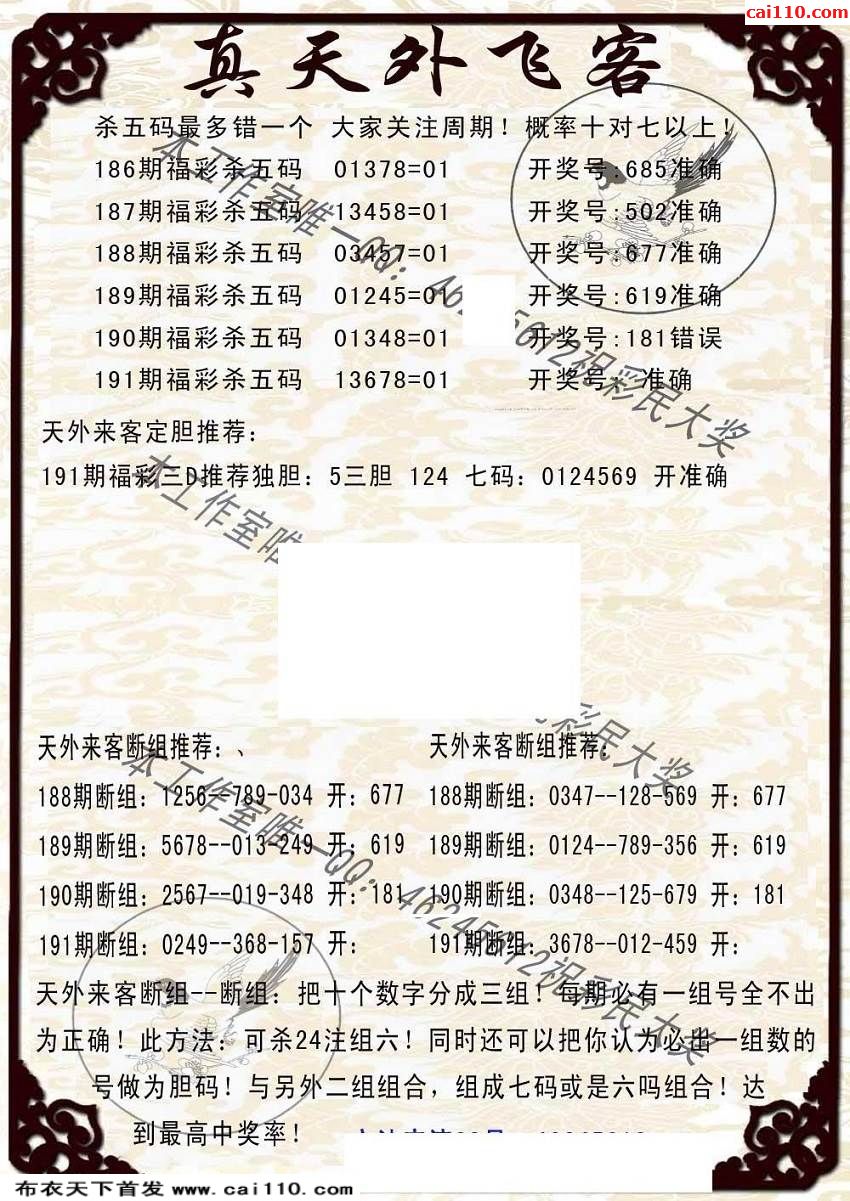 cai110.com
真天外飞客
杀五码最多错一个 大家关注周期！概率十对七以上！
186期福彩杀五码 01378=01 开奖号:685准确
187期福彩杀五码 13458=01 开奖号:502准确
188期福彩杀五码 03457=01 开奖号:677准确
189期福彩杀五码 01245=01 开奖号:619准确
190期福彩杀五码 01348=01 开奖号:181错误
191期福彩杀五码 13678=01 开奖号: 准确
天外来客定胆推荐：
191期福彩三D推荐独胆：5三胆 124 七码：0124569 开准确
天外来客断组推荐：、 天外来客断组推荐：
188期断组：1256--789-034 开：677 188期断组：0347--128-569 开：677
189期断组：5678--013-249 开：619 189期断组：0124--789-356 开：619
190期断组：2567--019-348 开：181 190期断组：0348--125-679 开：181
191期断组：0249--368-157 开： 191期断组：3678--012-459 开：
天外来客断组--断组：把十个数字分成三组！每期必有一组号全不出
为正确！此方法：可杀24注组六！同时还可以把你认为必出一组数的
号做为胆码！与另外二组组合，组成七码或是六吗组合！达
到最高中奖率！
本工作室唯一QQ：46245612祝彩民大奖
布衣天下首发 www.cai110.com